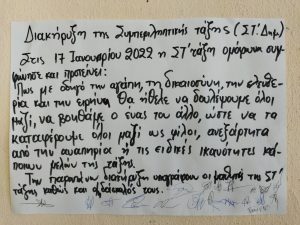 Διακήρυξη της Συμπεριληπτικής τάξης (ΣΤ' Δημ.)
Στις 17 Ιανουαρίου 2022 η ΣΤ' τάξη ομόφωνα συμ-
φώνησε και προτείνει:
Πως με οδηγό την αγάπη, τη δικαιοσύνη, την ελευθε-
ρία και την ειρήνη θα ήθελε να δουλέψουμε όλοι
μαζί, να βοηθάμε ο ένας τον άλλο, ώστε να τα
καταφέρουμε όλοι μαζί ως φίλοι, ανεξάρτητα
από την αναπηρία ή τις ειδικές ικανότητες κά-
ποιων μελών της τάξης.
Την παρούσα διακήρυξη υπογράφουν οι μαθητές της ΣΤ'
τάξης καθώς και ο δάσκαλός τους.